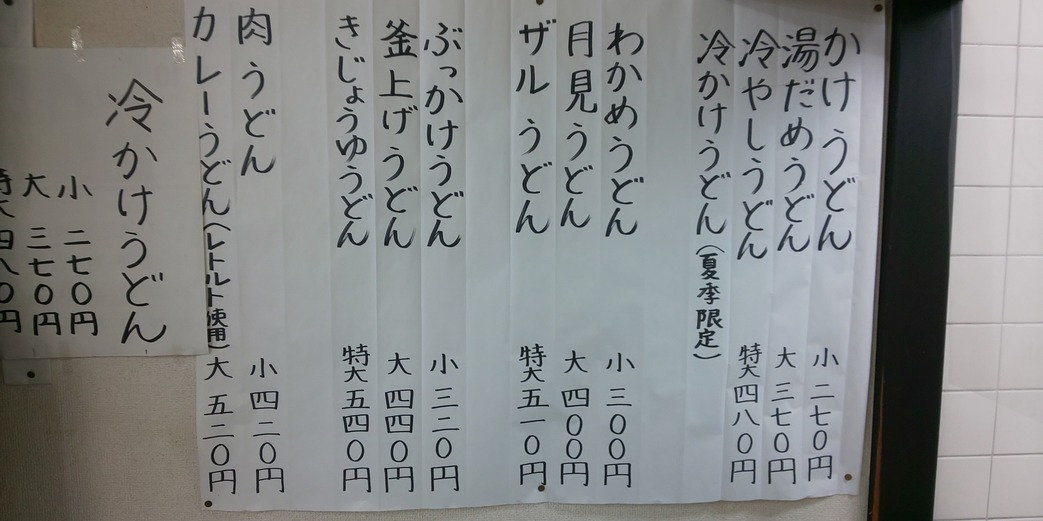 かけうどん
湯だめうどん
冷やしうどん
冷かけうどん(夏季限定)
小 二七〇円
大 三七〇円
特大 四八〇円
わかめうどん
月見うどん
ザルうどん
小 三〇〇円
大 四〇〇円
特大 五一〇円
ぶっかけうどん
釜上げうどん
きじょうゆうどん
小 三二〇円
大 四四〇円
特大 五四〇円
肉うどん
カレーうどん(レトルト使用)
小 四二〇円
大 五二〇円
冷かけうどん
小 二七〇円
大 三七〇円
特大 四八〇円